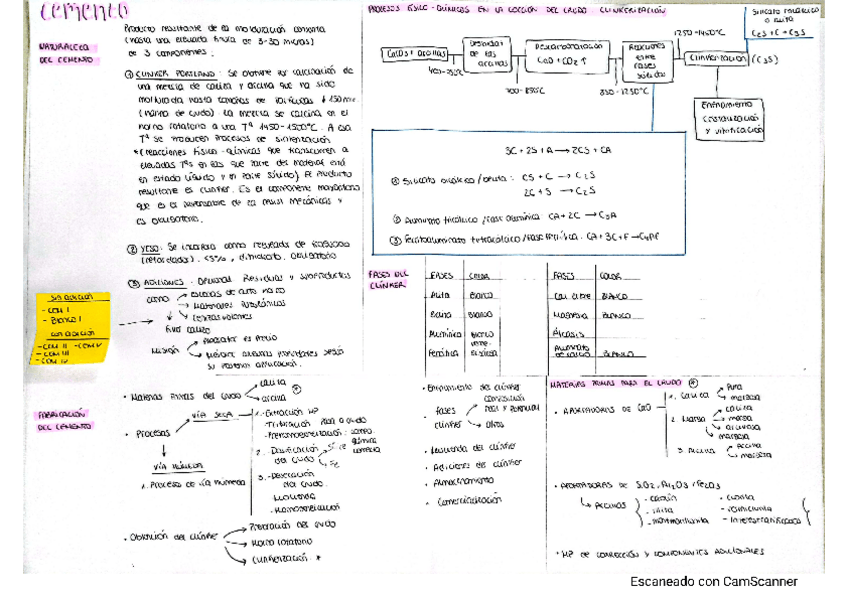 cemento
NATURALEZA
DEL CEMENTO
Producto resultante de la molturación conjunta
(hasta una elevada finura de 3-30 micras)
de 3 componentes.
① CLINKER PORTLAND: Se obtiene por calcinación de
una mezcla de caliza y arcilla que ha sido
molturada hasta tamaños de
(harina de crudo). La mezcla se calcina en el
horno rotatorio a una Tª 1450-1500°C. A esa
Tª se producen procesos de sinterización
*(reacciones físico-químicas que transcurren a
elevadas Tªs en las que parte del material está
en estado líquido y en parte sólido) El producto
resultante es clinker. Es el componente
que es el responsable de la resist mecánicas y
es obligatorio.
② YESO: Se incorpora como regulador de fraguado
(retardador). <5%, dihidrato. Obligatorio
③ ADICIONES: Opcional. Residuos y subproductos
como
Escorias de alto horno
Materiales Puzolánicos
Cenizas volantes
Filler calizo
Misión
Abaratar el precio
Mejorar algunas propiedades según
su posterior aplicación.
SIN ADICIÓN
- CEM I
- Blanco I
CON ADICIÓN
- CEM II - CEM V
- CEM III
- CEM IV
PROCESOS FÍSICO-QUÍMICOS EN LA COCCIÓN DEL CRUDO. CLINKERIZACIÓN
CaCO₃ + arcillas
Deshidrat
de las
arcillas
Descarbonatación
CaO + CO₂ ↑
Reacciones
entre
fases
sólidas
1250-1450°C
Clinkerización (C₃S)
Silicato tricálcico
o alita
C₂S + C → C₃S
Enfriamiento
Cristalización
y vitrificación
3C + 2S + A → 2CS + CA
① Silicato dicálcico/belita: CS + C → C₂S
2C + S → C₂S
② Aluminato tricálcico/fase alumínica CA + 2C → C₃A
③ Ferritoaluminato tetracálcico/fase ferrítica. CA + 3C + F → C₄AF
FASES DEL
CLÍNKER
FASES COLOR
Alita Blanco
Belita Blanco
Alumínica Blanco
Ferrítica
FASES COLOR
Cal libre BLANCO
Magnesia BLANCO
Álcalis
BLANCO
FABRICACIÓN
DEL CEMENTO
· Materias Primas del crudo
caliza
arcilla
· Procesos
VÍA SECA
1. Extracción MP
Trituración
Prehomogeneización
2. Dosificación
del crudo
3.
del crudo
Homogeneización
VÍA HÚMEDA
1. Proceso de vía húmeda
· Obtención del clinker
Preparación del crudo
Horno rotatorio
Clinkerización *
· Enfriamiento del clinker
· Fases
clinker
Otros
· Molienda del clinker
· Adiciones del clinker
· Almacenamiento
· Comercialización
MATERIAS PRIMAS PARA EL CRUDO
· APORTADORAS DE CaO
1. Caliza
Pura
margosa
2. Marga
caliza
marga
arcillosa
margosa
3. Arcilla
Arcilla
margosa
· APORTADORAS DE SiO₂, Al₂O₃, Fe₂O₃
Arcillas
- caolín
- illita
- montmorillonita
- clorita
- vermiculita
- Interestratificados
· MP DE CORRECCIÓN Y COMPONENTES ADICIONALES
Escaneado con CamScanner